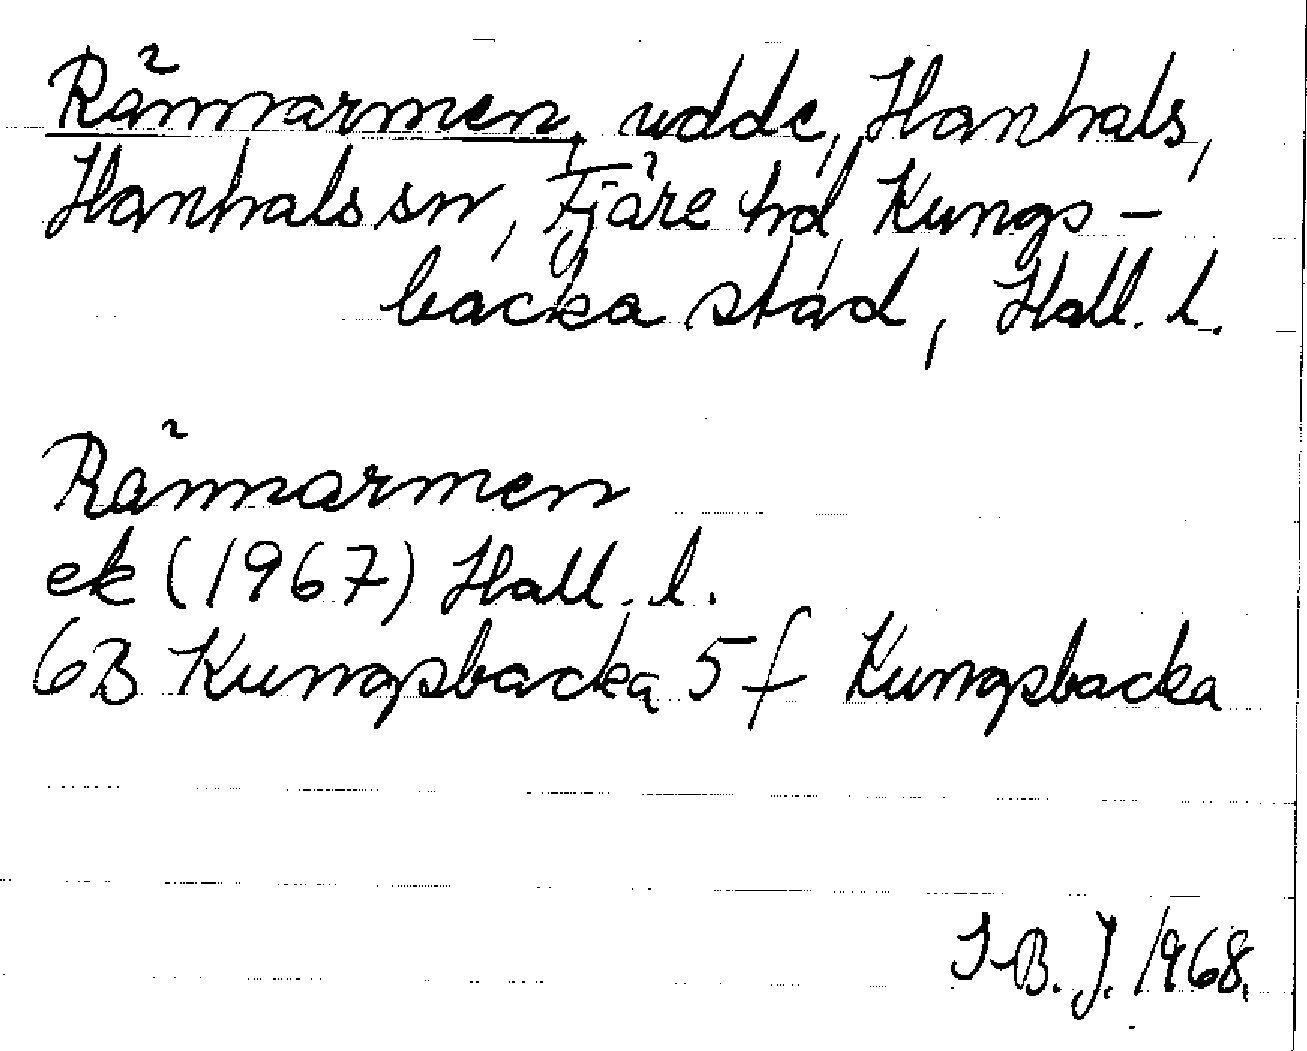 Rännarmen, udde, Hanhals,
Hanhals sn, Fjäre hd, Kungs-
backa stad, Hall. l.
Rännarmen
ek (1967) Hall. l.
6B Kungsbacka 5f Kungsbacka
I-B. J. 1968.